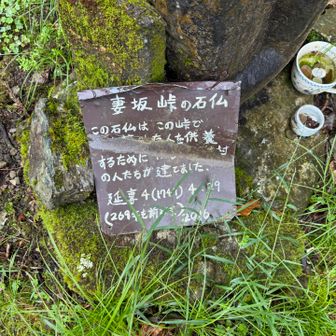 妻坂峠の石仏
この石仏は この峠で
人を供養
するために
の人たちが建てました。
延喜4(1741)4.29
(269年も前 2010